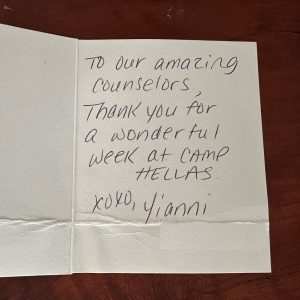 To our amazing
counselors,
Thank you for
a wonderful
week at CAMP
HELLAS.
xoxo, Yianni